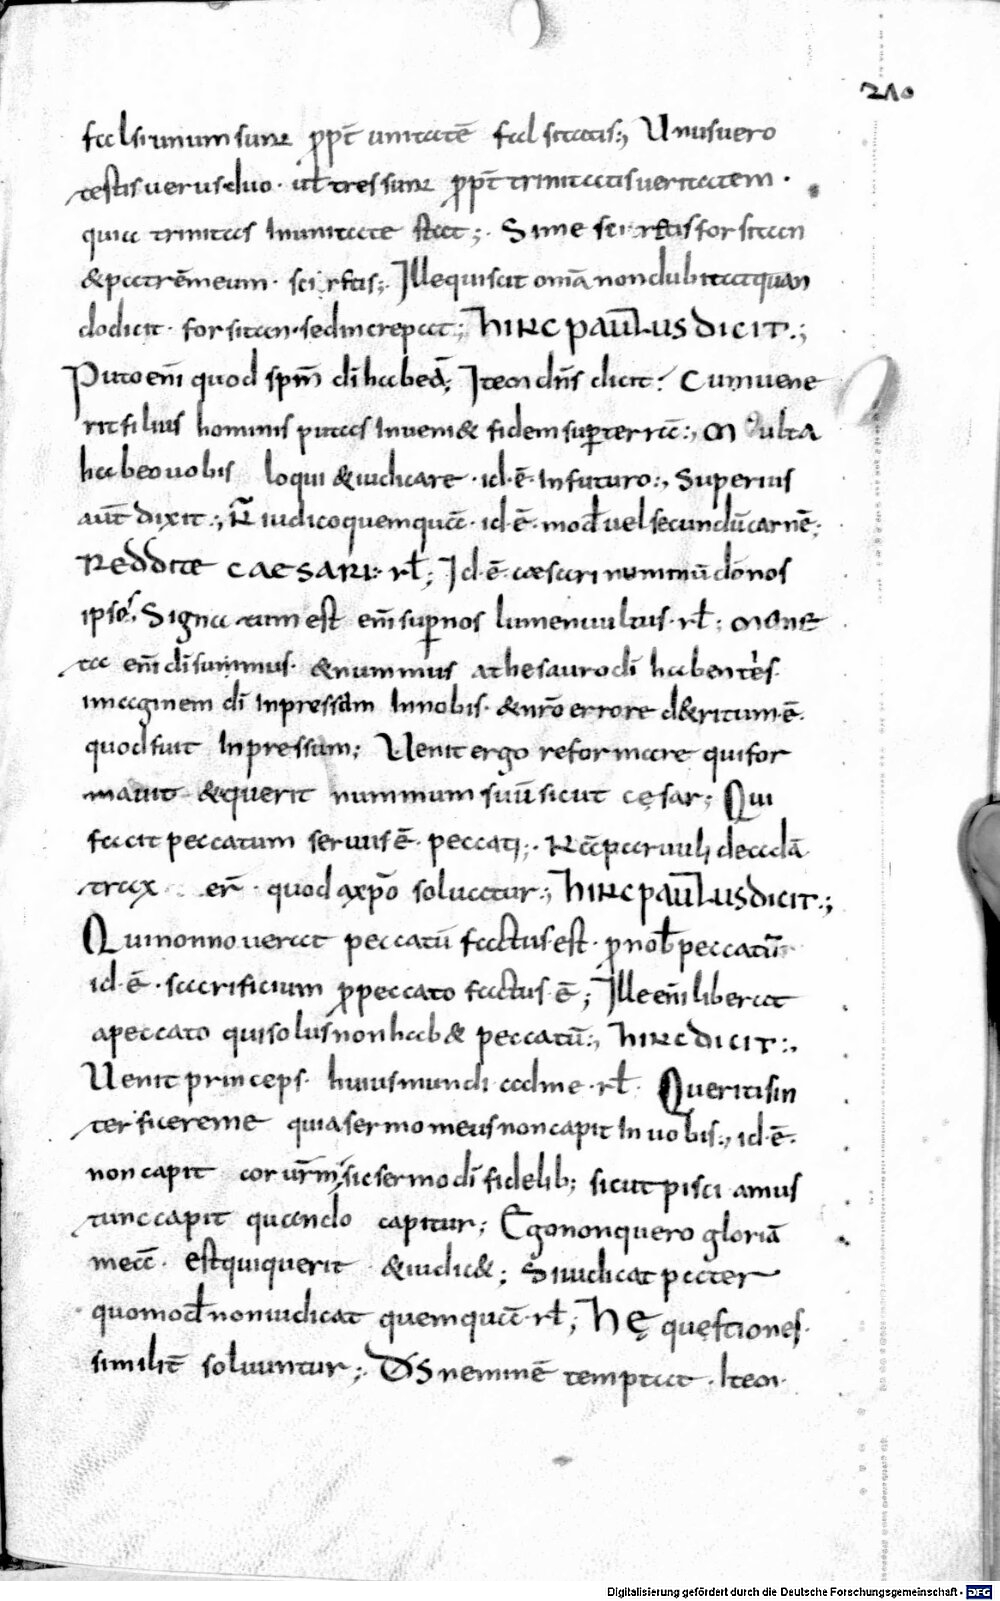 210
falsi unum sunt ꝓpt̄ unitatē falsitatis:, Unus uero
testis uerus duo · uł tres sunt ꝓpt̄ trinitatis ueritatem ·
quia trinitas In unitate stat; Si me sci retis forsitan
& patrē meum · sci retis; Ille qui scit om̄a non dubitat quan
do dicit · forsitan · sed increpat; hINC pAUŪLUS DICIT.;
Puto em̄ quod sp̄m dī habeā; Item dn̄s dicit: Cum uene
rit filius hominis putas Inueni& fidem super terrā:, Multa
habeo uobis loqui & iudicare · id · ē · In futuro:, Superius
aut̄ dixit:, N̄ iudico quemquā · id · ē · mod̄ uel secundū carnē;
Reddite CAESARI: rł; Id · ē · caesari nummū dō nos
ipsos. Signatum est em̄ suꝑ nos lumen uultus · rł; mone
ta em̄ dī sumus · & nummus a thesauro dī habentes
imaginem dī Inpressam In nobis · & nr̄o errore d&ritum · ē ·
quod fuit Inpressum; Uenit ergo reformare qui for
mauit & querit nummum suū sicut cęsar; Qui
facit peccatum seruus ē · peccati; · Nā paruuli de adā
trax er̄ · quod a xp̄o soluatur:, hINC pAŪLUS DICIT.;
Qui non nouerat peccatū factus est · ꝓ nob̄ peccatū
id · ē · sacrificium ꝓ peccato factus · ē; Ille em̄ liberat
a peccato qui solus non hab& peccatū:, hINC DICIT:.
Uenit princeps · huius mundi ad me · rł · Queritis in
terficere me quia sermo meus non capit In uobis:, id · ē ·
non capit cor ur̄m, sic sermo dī fidelib; sicut pisci amus
tunc capit quando capitur; Ego non quero gloriā
meā · est qui querit & iudic&; Si iudicat pater
quomod̄ non iudicat quemquā · rł; hĘ quęstiones
similit̄ soluuntur; · DS neminē temptat · Item ·
Digitalisierung gefördert durch die Deutsche Forschungsgemeinschaft - DFG